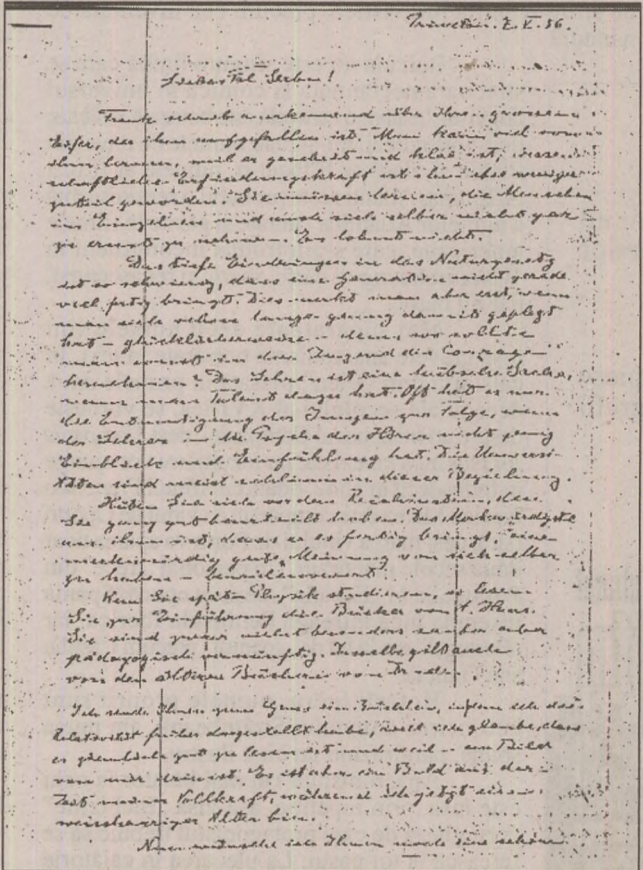 Princeton. 7. V. 36.
Liebes Frl. Serbu!
Frank schrieb anerkennend über Ihren grossen
Eifer, der ihm aufgefallen ist. Man kann viel von
ihm lernen, weil er gescheit und klar ist;
schaftliche Erfindungskraft ist ihm eher weniger
zuteil geworden. Sie müssen lernen, die Menschen
im Einzelnen und auch sich selber nicht gar
zu ernst zu nehmen. Es lohnt nicht.
Das tiefe Eindringen in das Naturgesetz
ist so schwierig, dass eine Generation nicht gerade
viel fertig bringt. Dies merkt man aber erst, wenn
man sich schon lange genug damit geplagt
hat – glücklicherweise – denn wo sollte
man sonst in der Jugend die Courage
hernehmen? Das Lehren ist eine hübsche Sache,
wenn man Talent dazu hat. Oft hat es nur
die Entmutigung der Jungen zur Folge, wenn
der Lehrer in die Psyche des Hörers nicht genug
Einblick und Einfühlung hat. Die Universi-
täten sind meist schlimm in dieser Beziehung.
Hüten Sie sich vor dem den
Sie ganz gut beurteilt haben. Das Merkwürdigste
an ihm ist, dass er es fertig bringt, eine
merkwürdig gute Meinung von sich selber
zu haben –
Wenn Sie später Physik studieren, so lesen
Sie zur Einführung die Bücher von A. Haas.
Sie sind zwar nicht besonders sauber aber
pädagogisch vernünftig. Dasselbe gilt auch
von den älteren Büchern von
Ich sende Ihnen zum Gruss ein Büchlein, indem ich die
Relativität früher dargestellt habe, weil ich glaube, dass
es ziemlich gut zu lesen ist und weil ein Bild
von mir drin ist. Es ist aber ein Bild aus der
Zeit meiner Vollkraft, während ich jetzt ein
weisshaariger Alter bin.
Nun wünsche ich Ihnen noch eine schöne